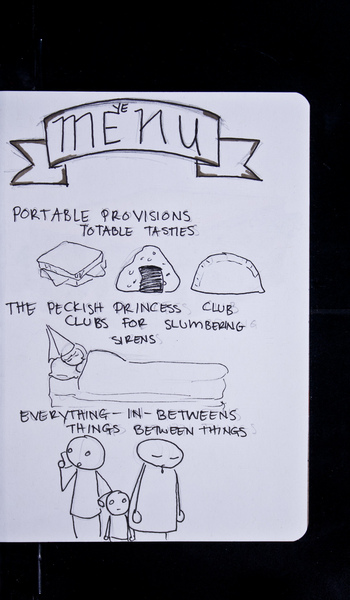 YE
MENU
PORTABLE PROVISIONS
TOTABLE TASTIES
THE PECKISH PRINCESS CLUB
CLUBS FOR SLUMBERING
SIRENS
EVERYTHING-IN-BETWEENS
THINGS BETWEEN THINGS